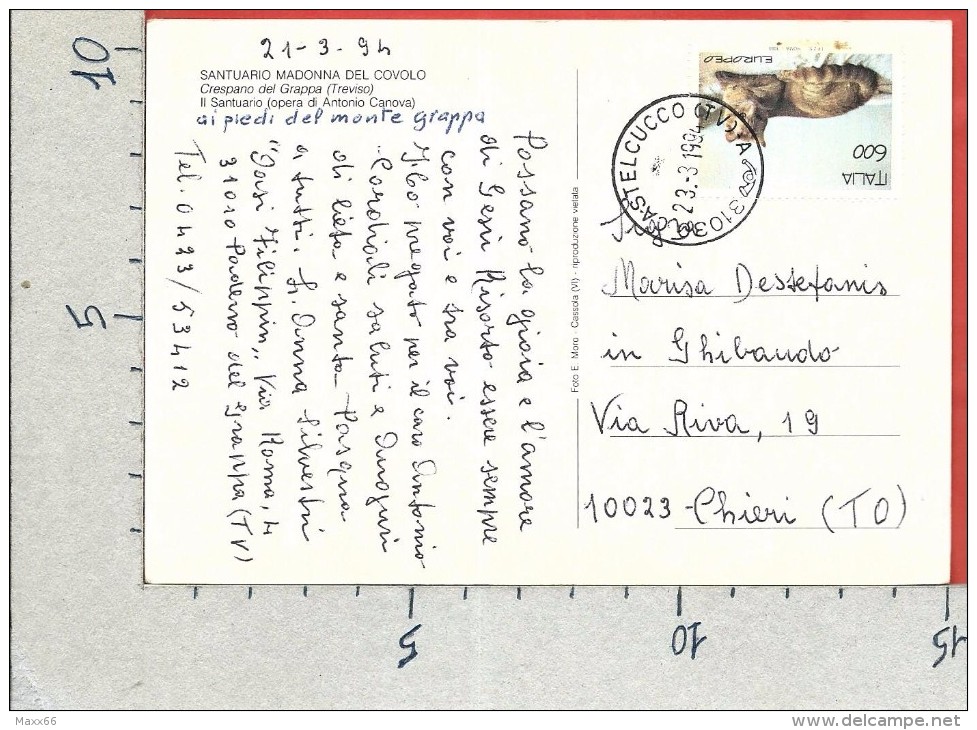 21-3-94
SANTUARIO MADONNA DEL COVOLO
Crespano del Grappa (Treviso)
Il Santuario (opera di Antonio Canova)
ai piedi del monte grappa
Possano la gioia e l'amore
di Gesù Risorto essere sempre
con voi e tra voi.
Ho pregato per il caro Antonio
Cordiali saluti e Auguri
di lieta e santa Pasqua
a tutti. Sr. Anna Silvestri
"Oasi Filippin" Via Roma, 4
31010 Paderno del Grappa (TV)
Tel. 0423/53412
Foto E. Moro - Cassola (VI) - riproduzione vietata
ITALIA
600
EUROPEO
31030 CASTELCUCCO (TV) A
23.-3.1994
Marisa Destefanis
in Ghibaudo
Via Riva, 19
10023 Chieri (TO)
10
5
5
10
15
Maxx66
www.delcampe.net